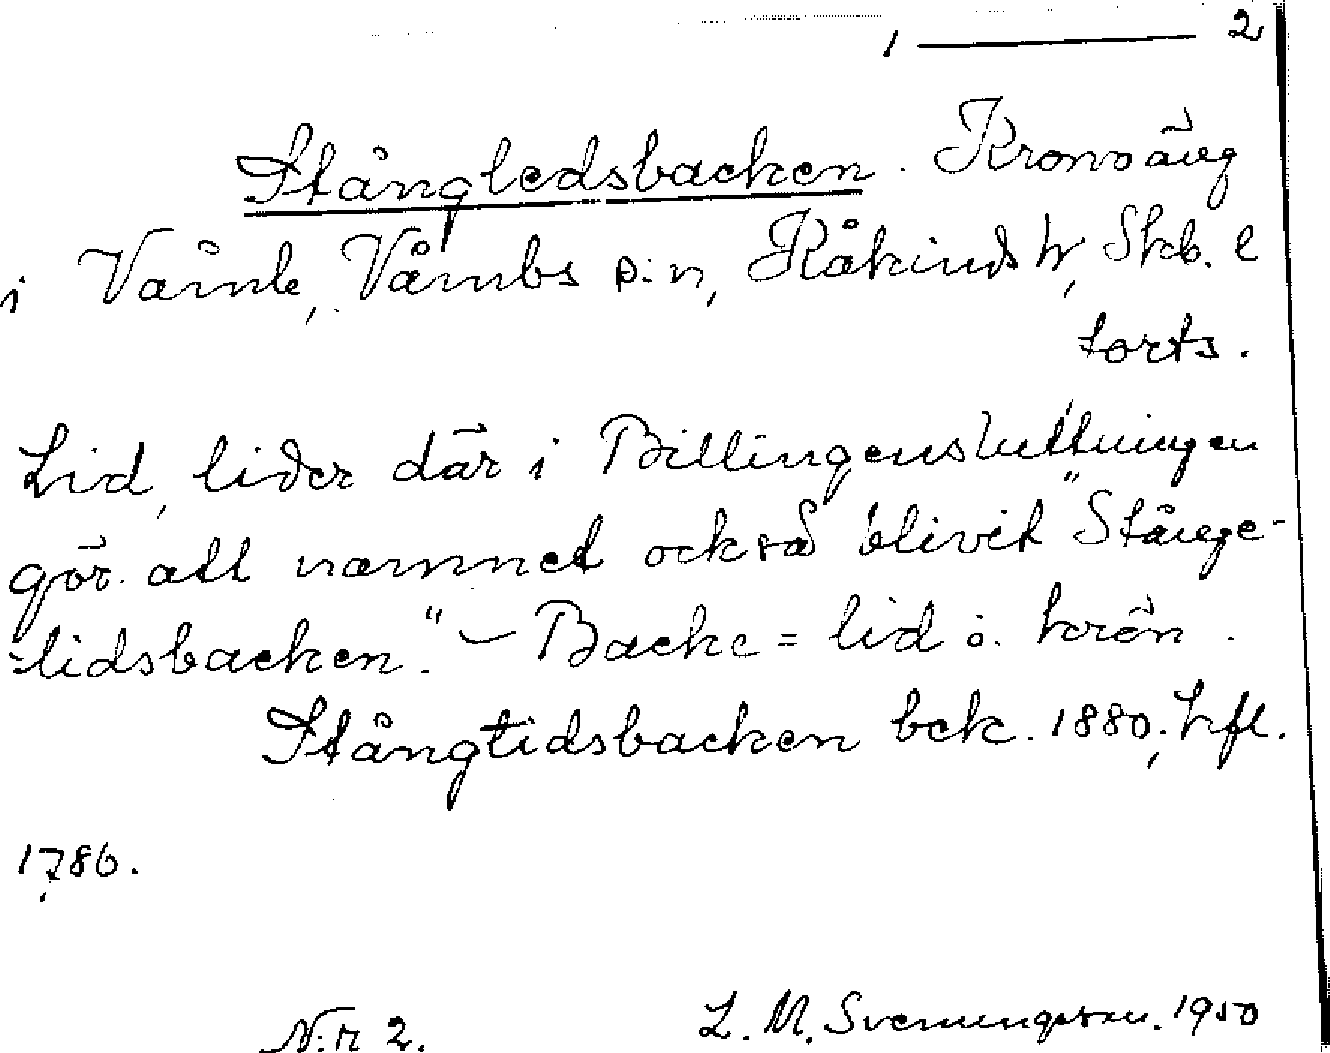 1 ——— 2
Stångledsbacken. Kronoäng
i Våmb, Våmbs s:n, Kåkinds h, Skb. l
forts.
Lid, lider där i Billingensluttningen
gör att namnet också blivit "Stånge-
lidsbacken." – Backe = lid o. krön.
Stångtidsbacken bek. 1880, hfl.
1786.
N:r 2. L. M. Svenungsson. 1950